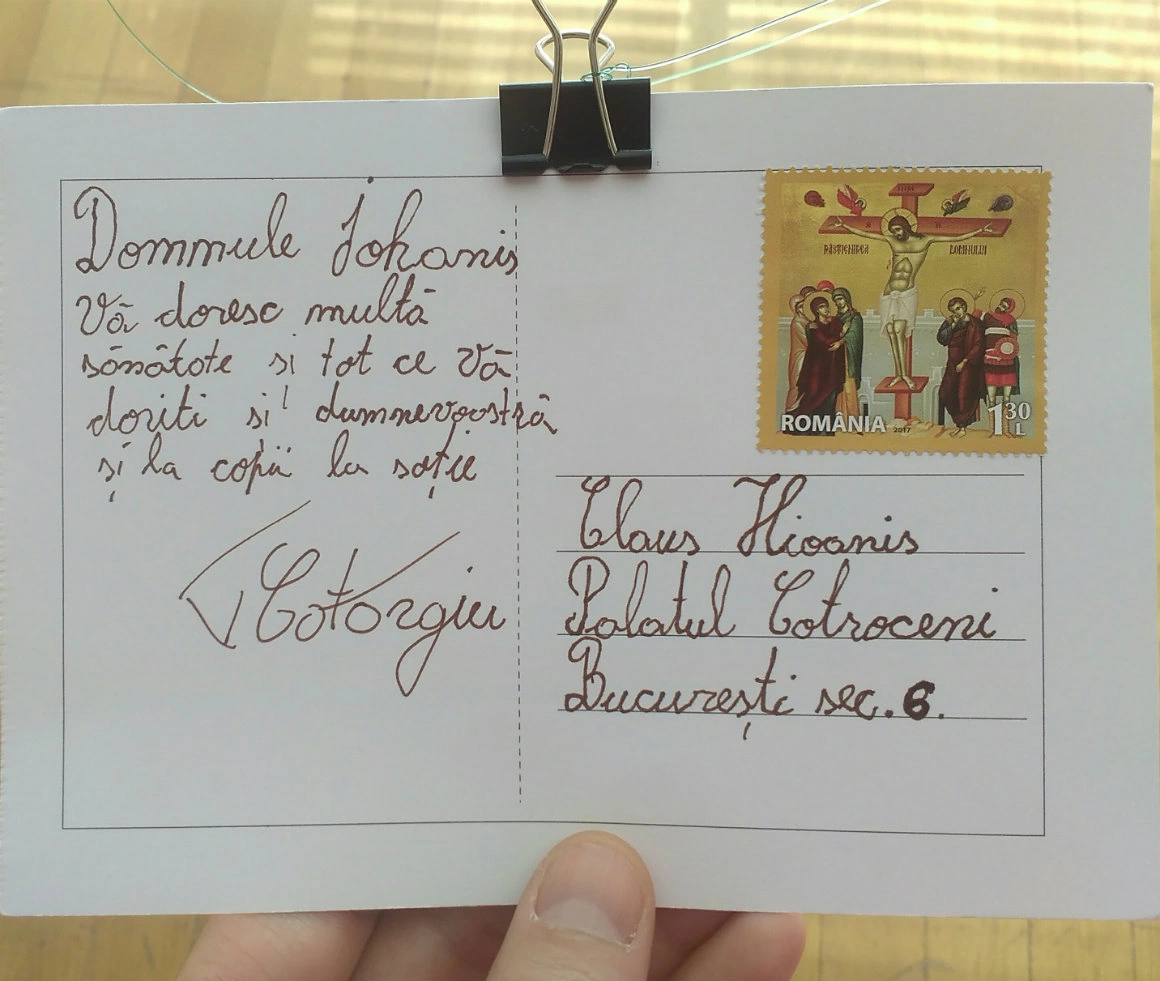 Dommule Johanis
Vă doresc multă
sănătote si tot ce Vă
doriti si dumnevoostră
și la copii la soție
Cotorgiu
RĂSTIGNIREA DOMNULUI
ROMÂNIA 2017 1 30 L
Claus Hioanis
Palatul Cotroceni
București sec. 6.